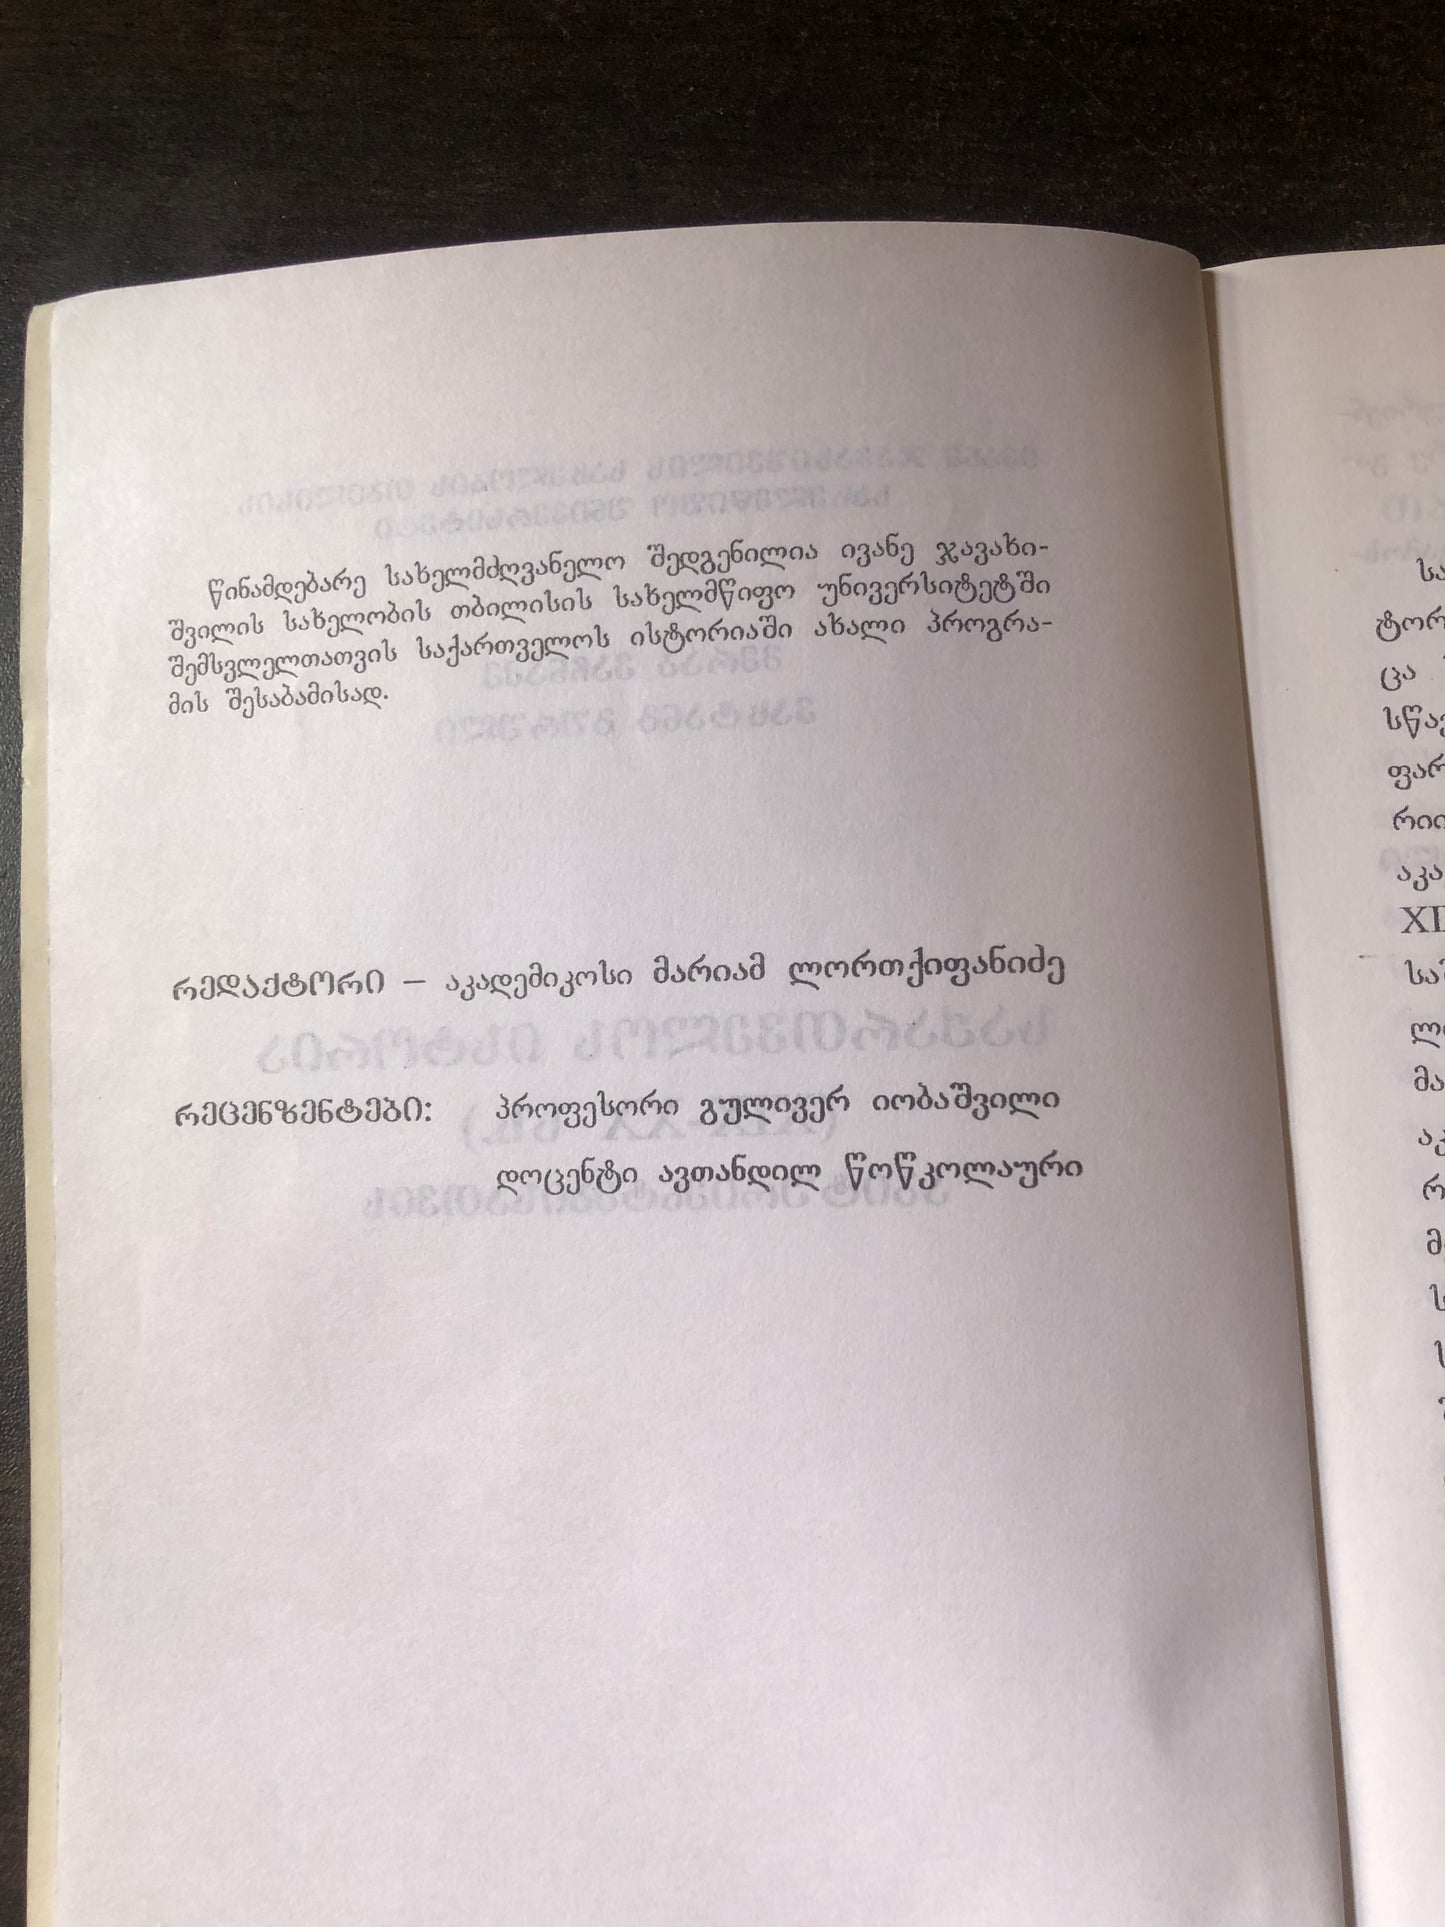 წინამდებარე სახელმძღვანელო შედგენილია ივანე ჯავახი-
შვილის სახელობის თბილისის სახელმწიფო უნივერსიტეტში
შემსვლელთათვის საქართველოს ისტორიაში ახალი პროგრა-
მის შესაბამისად.
რედაქტორი – აკადემიკოსი მარიამ ლორთქიფანიძე
რეცენზენტები: პროფესორი გულივერ იობაშვილი
დოცენტი ავთანდილ წოწკოლაური